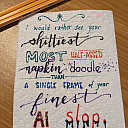 I would rather see your
shittiest
MOST HALF-ASSED
napkin doodle
THAN
A SINGLE FRAME of your
finest
AI slop.